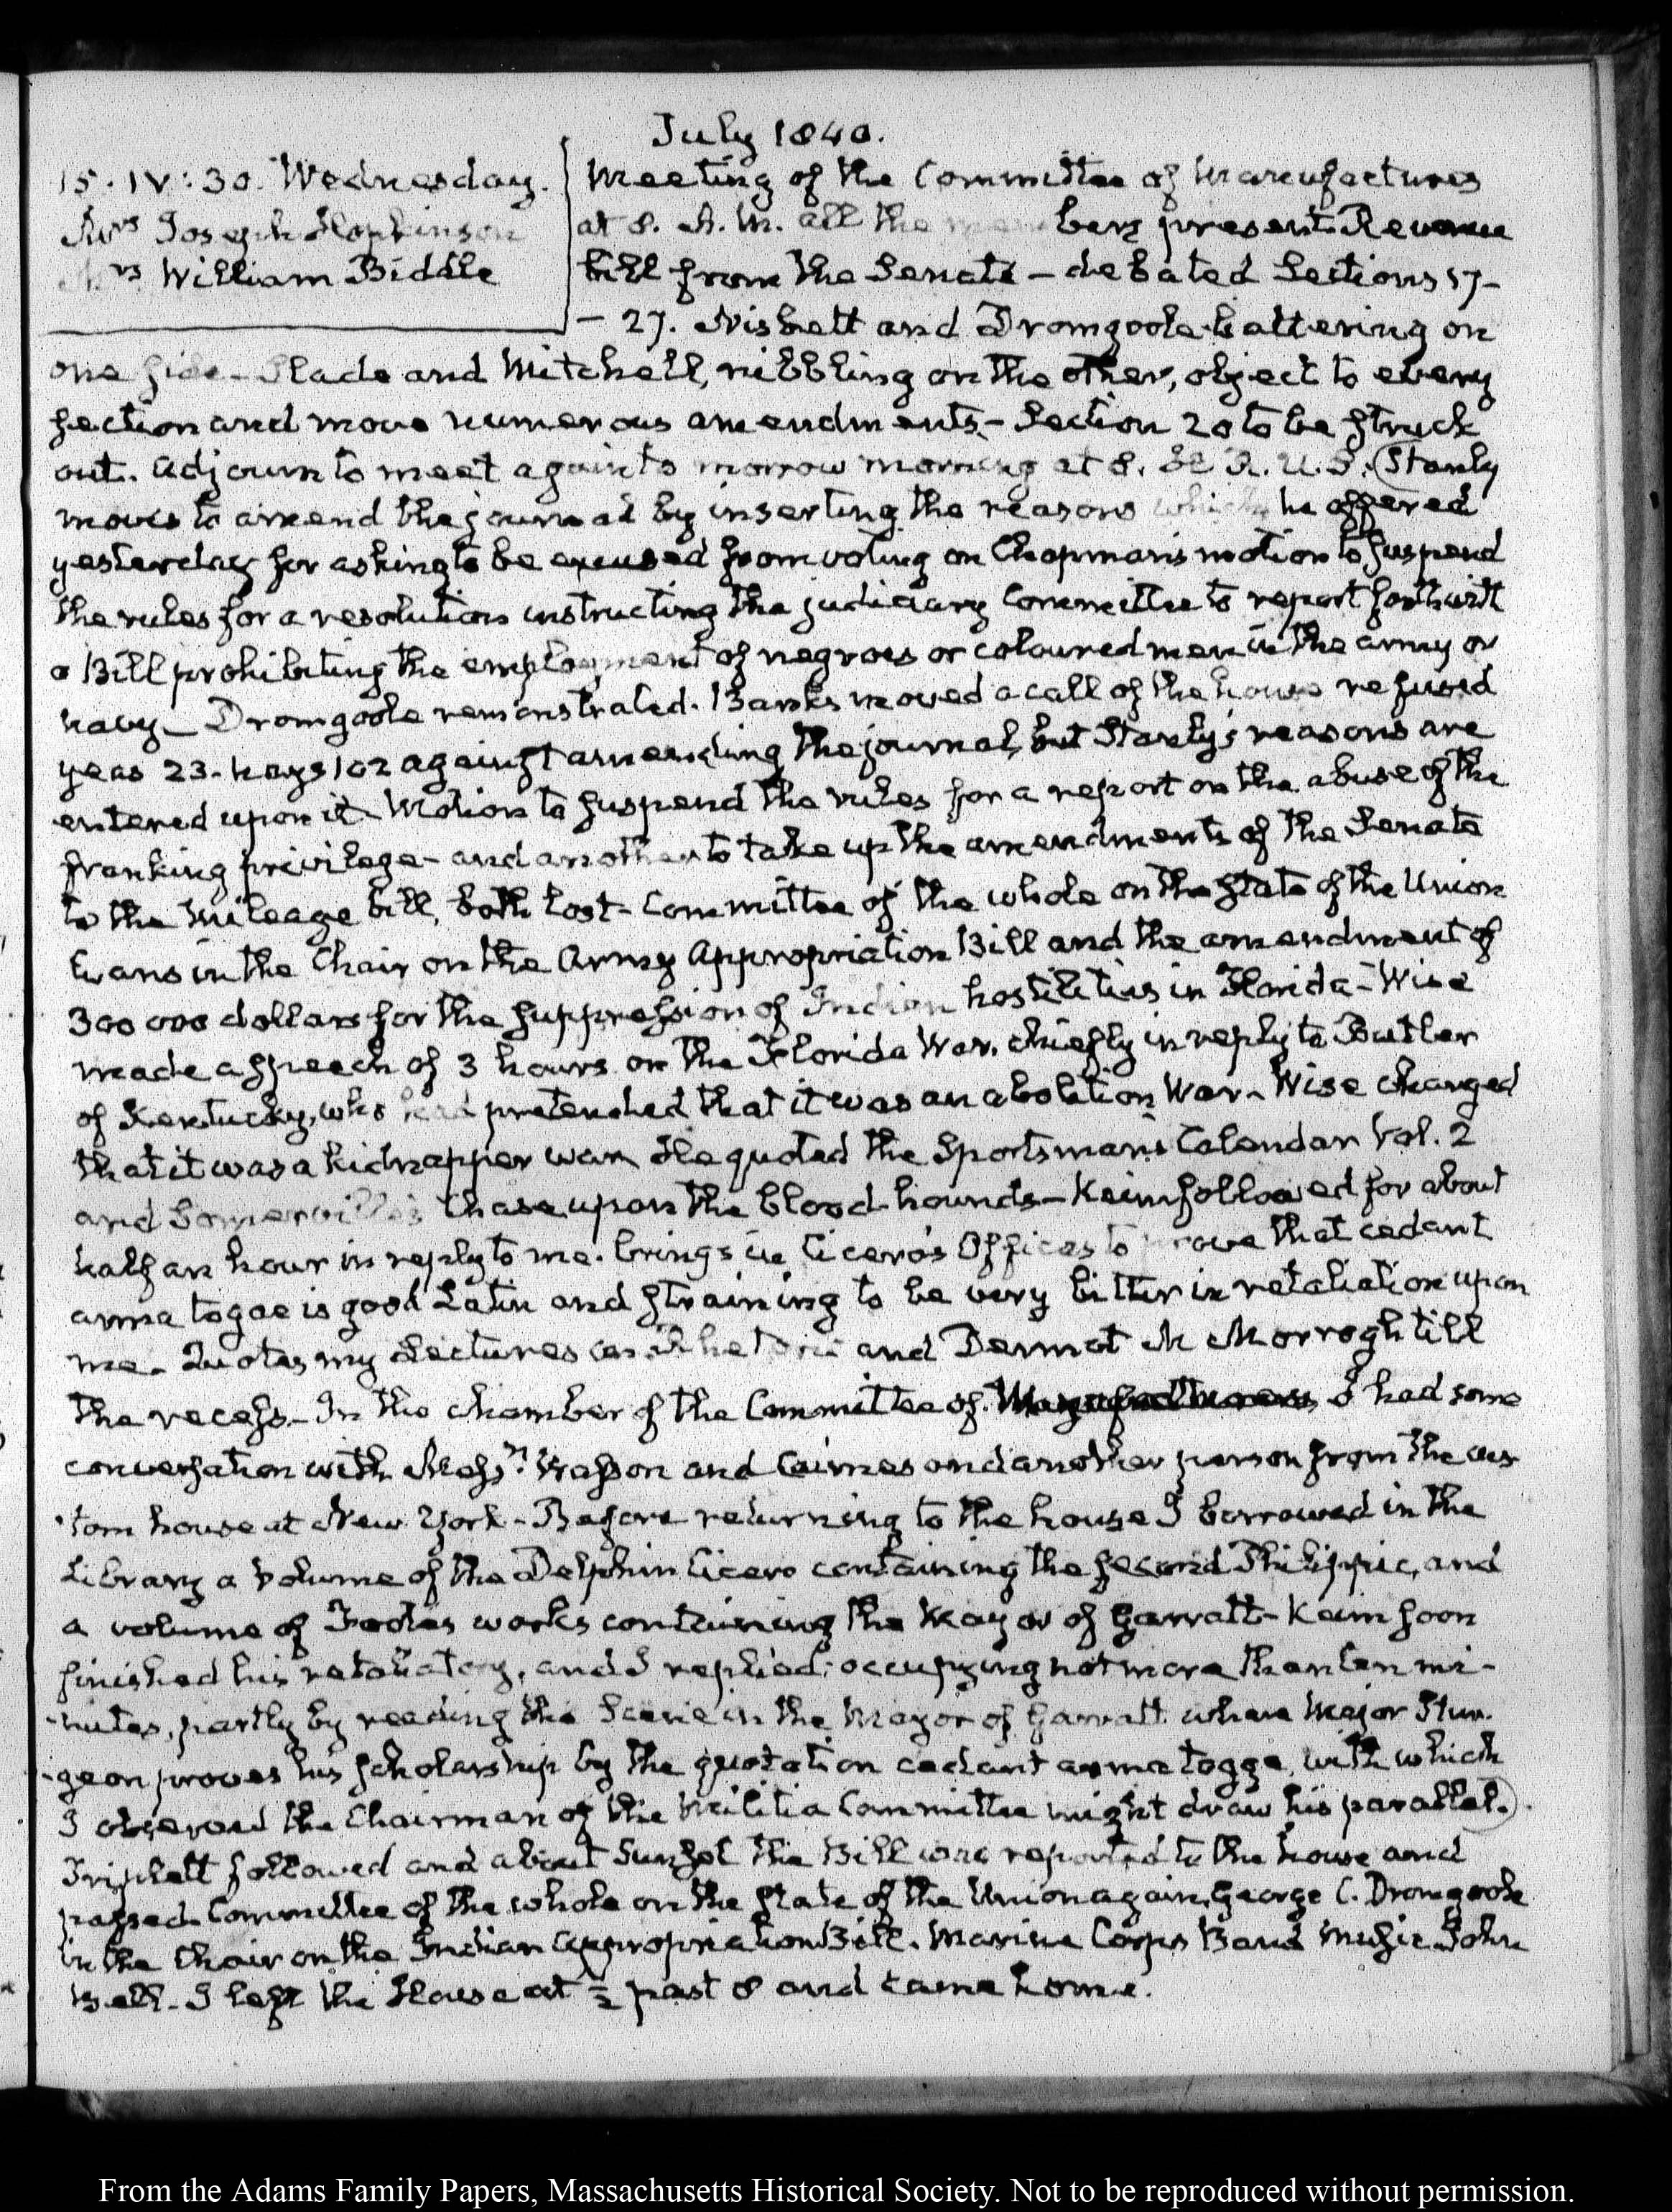 July 1840.
15. IV: 30. Wednesday.
Mrs Joseph Hopkinson
Mrs William Biddle
Meeting of the Committee of Manufactures
at 8. A. M. all the members present. Revenue
bill from the Senate – debated Sections 17–
– 27. Nisbett and Dromgoole battering on
one side – Slade and Mitchell, nibbling on the other, object to every
section and move numerous amendments – Section 20 to be struck
out. Adjourn to meet again to morrow morning at 8. H. R. U. S. (Stanly
moves to amend the journal by inserting the reasons which he offered
yesterday for asking to be excused from voting on Chapman's motion to suspend
the rules for a resolution instructing the judiciary Committee to report forthwith
a Bill prohibiting the employment of negroes or coloured men in the army or
navy – Dromgoole remonstrated. Banks moved a call of the house refused
yeas 23. nays 102 against amending the journal, but Stanly's reasons are
entered upon it – Motion to suspend the rules for a report on the abuse of the
franking privilege – and another to take up the amendments of the Senate
to the mileage bill, both lost – Committee of the whole on the state of the Union
Evans in the Chair on the Army Appropriation Bill and the amendment of
300 000 dollars for the suppression of Indian hostilities in Florida – Wise
made a speech of 3 hours on the Florida War, chiefly in reply to Butler
of Kentucky, who had pretended that it was an abolition War – Wise charged
that it was a kidnapper war. He quoted the Sportsman's Calendar Vol. 2
and Somerville's Chase upon the blood-hounds – Keim followed for about
half an hour in reply to me. brings in Cicero's Offices to prove that cedant
arma togae is good Latin and straining to be very bitter in retaliation upon
me – Quotes my Lectures on Rhetoric and Dermot M Morrogh till
the recess – In the chamber of the Committee of Manufactures I had some
conversation with Messrs. Wasson and Cairnes and another person from the cus
-tom house at New York – Before returning to the house I borrowed in the
Library a volume of the Delphin Cicero containing the second Philippic, and
a volume of Foote's works containing the Mayor of Garratt – Keim soon
finished his retaliatory, and I replied; occupying not more than ten mi-
-nutes, partly by reading the Scene in the Mayor of Garratt where Major Stur-
-geon proves his scholarship by the quotation cedant arma togge, with which
I observed the Chairman of the Militia Committee might draw his parallel.)
Triplett followed and about Sunset the Bill was reported to the house and
passed. Committee of the whole on the state of the Union again, George C. Dromgoole
in the Chair on the Indian appropriation Bill. Marine Corps Band Music John
Bell – I left the House at ½ past 8 and came home.
From the Adams Family Papers, Massachusetts Historical Society. Not to be reproduced without permission.